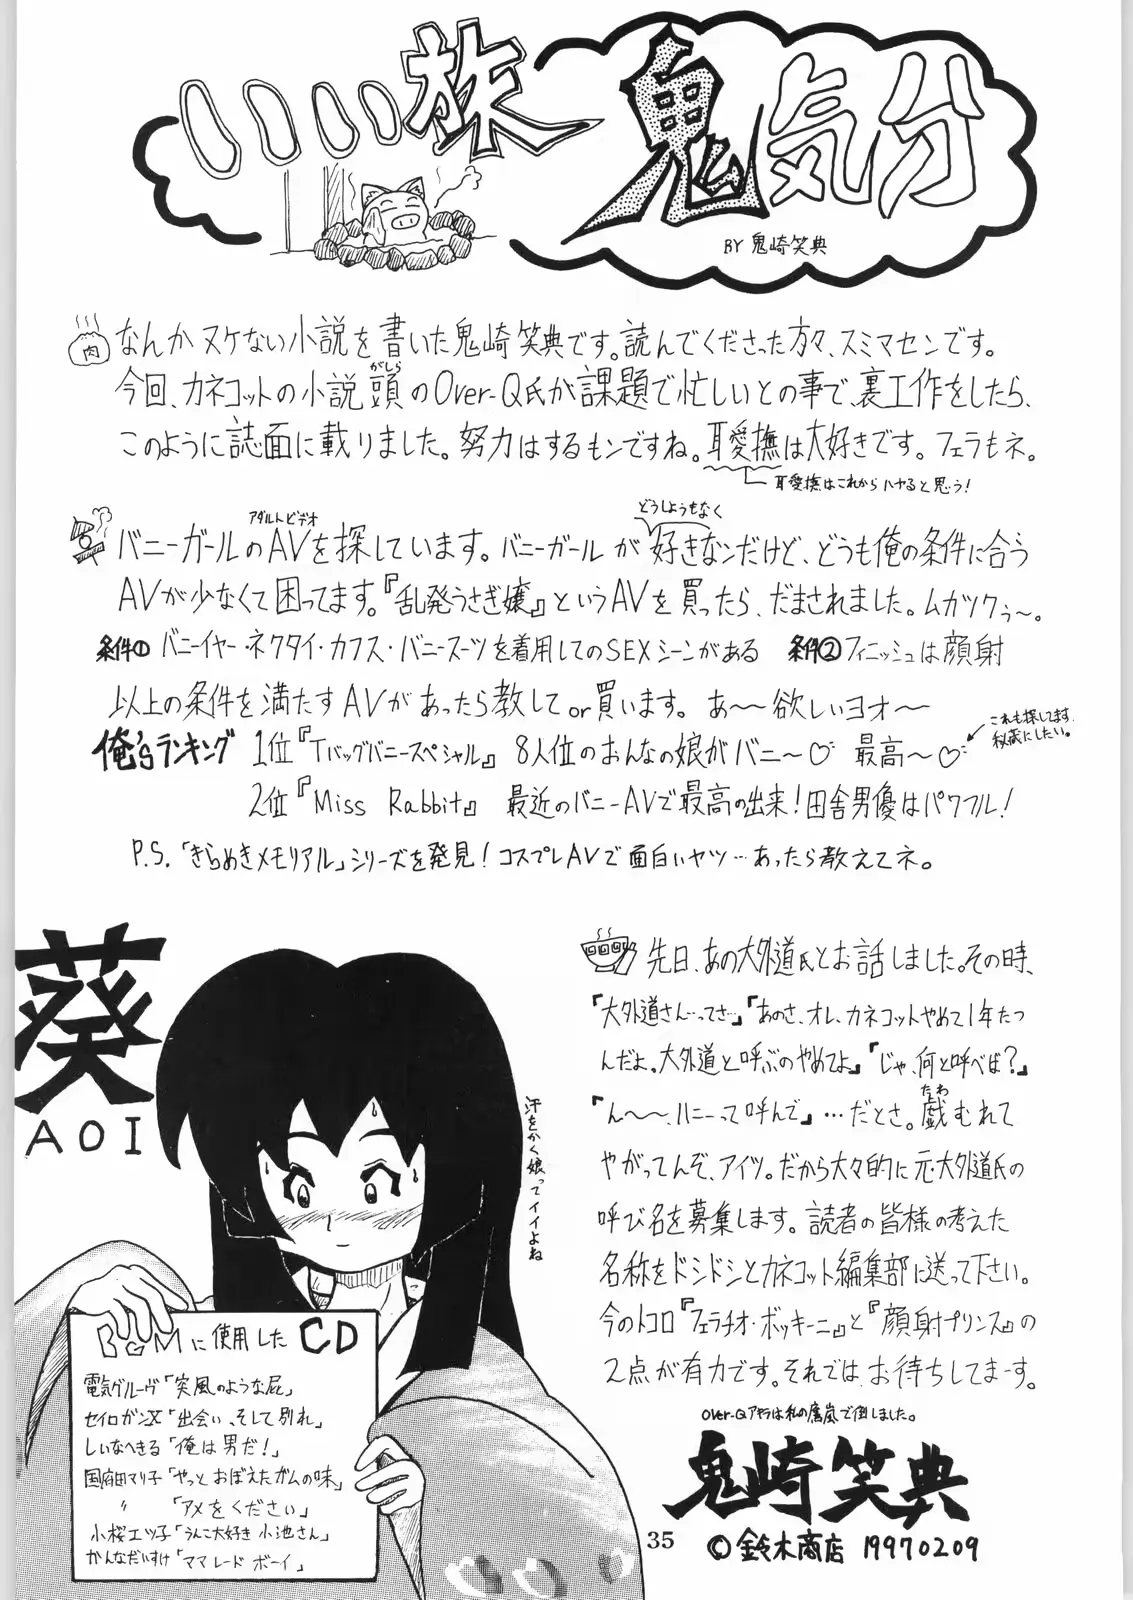 いい旅鬼気分
BY 鬼崎笑典
肉
なんかヌケない小説を書いた鬼崎笑典です。読んでくださった方々、スミマセンです。
今回、カネコットの小説頭のOver-Q氏が課題で忙しいとの事で、裏工作をしたら、
がしら
このように誌面に載りました。努力はするモンですね。耳愛撫は大好きです。フェラもネ。
耳愛撫はこれからハヤると思う!
バニーガールのAVを探しています。バニーガールが好きなンだけど、どうも俺の条件に合う
アダルトビデオ
どうしようもなく
AVが少なくて困ってます。『乱発うさぎ嬢』というAVを買ったら、だまされました。ムカツクぅ〜。
条件① バニーイヤー・ネクタイ・カフス・バニースーツを着用してのSEXシーンがある 条件② フィニッシュは顔射
以上の条件を満たすAVがあったら教してor買います。あ〜欲しいヨオ〜
俺'sランキング 1位『Tバックバニースペシャル』 8人位のおんなの娘がバニ〜♡ 最高〜♡
これも探してます。
秘蔵にしたい。
2位『Miss Rabbit』 最近のバニーAVで最高の出来!田舎男優はパワフル!
P.S.「きらめきメモリアル」シリーズを発見!コスプレAVで面白いヤツ…あったら教えてネ。
葵
AOI
汗をかく娘ってイイよね
BGMに使用したCD
電気グルーヴ「突風のような屁」
セイロガンX「出会い、そして別れ」
しいなへきる「俺は男だ!」
国府田マリ子「やっとおぼえたガムの味」
〃 「アメをください」
小桜エツ子「うんこ大好き小池さん」
かんなだいすけ「ママレードボーイ」
先日、あの大外道氏とお話しました。その時、
『大外道さん…ってさ…』『あのさ、オレ、カネコットやめて1年たつ
んだよ。大外道と呼ぶのやめてよ』『じゃ、何と呼べば?』
『ん〜〜、ハニーって呼んで』…だとさ。戯むれて
たわ
やがってんぞ、アイツ。だから大々的に元・大外道氏の
呼び名を募集します。読者の皆様の考えた
名称をドシドシとカネコット編集部に送って下さい。
今のトコロ『フェラチオ・ボッキーニ』と『顔射プリンス』の
2点が有力です。それでは、お待ちしてまーす。
Over-Qアキラは私の
で倒しました。
鬼崎笑典
©鈴木商店 19970209
35